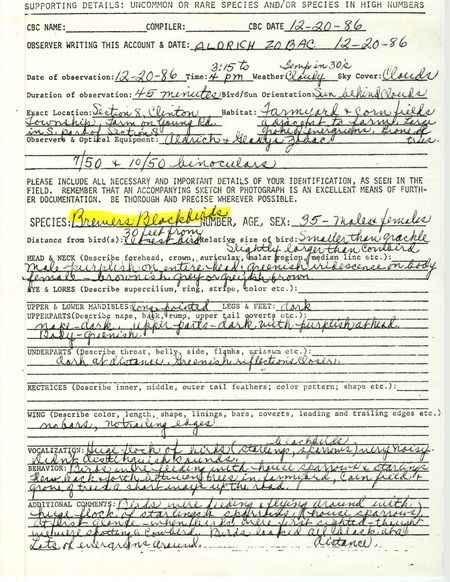 SUPPORTING DETAILS: UNCOMMON OR RARE SPECIES AND/OR SPECIES IN HIGH NUMBERS
CBC NAME: COMPILER: CBC DATE 12-20-86
OBSERVER WRITING THIS ACCOUNT & DATE: ALDRICH ZOBAC 12-20-86
3:15 to Temp in 30's
Date of observation: 12-20-86 Time: 4 pm Weather Cloudy Sky Cover: Clouds
Duration of observation: 45 minutes Bird/Sun Orientation: Sun behind Clouds
Exact Location: Section 8, Clinton Habitat: Farmyard & Corn fields
Township, Farm on Young Rd. adjacent to farm. Large
in S. part of Section 8 grove of evergreens. Grove of
Observers & Optical Equipment: Aldrich & Gladys Zobac trees.
7/50 & 10/50 binoculars
PLEASE INCLUDE ALL NECESSARY and IMPORTANT DETAILS OF YOUR IDENTIFICATION, AS SEEN IN THE
FIELD. REMEMBER THAT AN ACCOMPANYING SKETCH OR PHOTOGRAPH IS AN EXCELLENT MEANS OF FURTH-
ER DOCUMENTATION. BE THOROUGH AND PRECISE WHEREVER POSSIBLE.
SPECIES: Brewers Blackbirds NUMBER, AGE, SEX: 35 - Males & females
30 feet from
Distance from bird(s): closest bird Relative size of bird: Smaller than grackle
slightly larger than Cowbird
HEAD & NECK (Describe forehead, crown, auricular, malar region, median line etc.):
Male - purplish on entire head; greenish iridescence on body
female - brownish grey or greyish brown
EYE & LORES (Describe supercilium, ring, stripe, color etc.):
UPPER & LOWER MANDIBLES: long pointed LEGS & FEET: dark
UPPERPARTS (Describe nape, back, rump, upper tail coverts etc.)
nape - dark, upper parts - dark, with purplish at head.
Body - greenish.
UNDERPARTS (Describe throat, belly, side, flanks, crissum etc.):
dark at distance. Greenish reflections closer.
RECTRICES (Describe inner, middle, outer tail feathers; color pattern; shape etc.):
WING (Describe color, length, shape, linings, bars, coverts, leading and trailing edges etc.)
no bars, no trailing edges
blackbirds
VOCALIZATION: Huge flock of birds (starlings, sparrows) very noisy.
Didn't distinguish sounds.
BEHAVIOR: Birds were feeding with house sparrows & starlings
flew back & forth between trees in farmyard, Corn field &
grove of trees a short ways up the road.
ADDITIONAL COMMENTS: Birds were feeding & flying around with
huge flock of starlings & sparrows (house sparrows)
At first glance - when birds were first sighted - thought
we were spotting a Cowbird. Birds looked all black at a
Lots of evergreens around. distance.